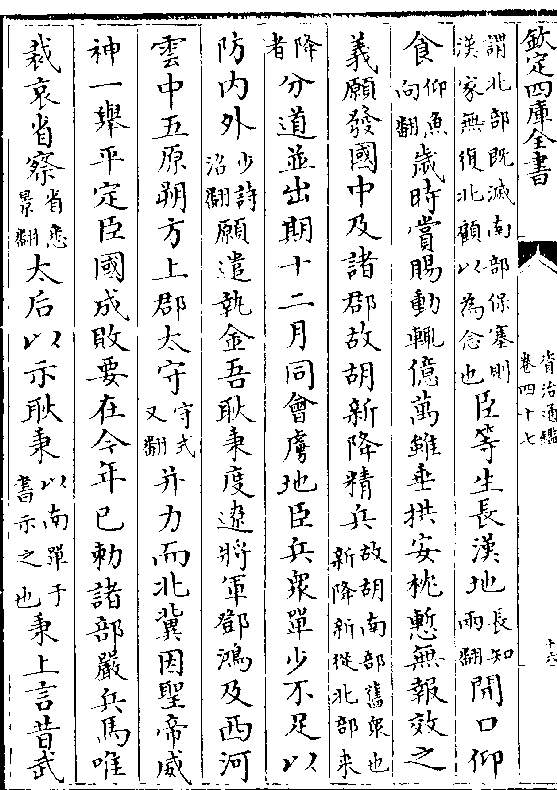 欽定四庫全書
資治通鑑
卷四十七
十六
謂北部既滅南部保塞則漢家無復北顧以為念也臣等生長漢地長知兩翻開口仰
食仰魚向翻歲時賞賜動輒億萬雖垂拱安枕慙無報效之
義願發國中及諸郡故胡新降精兵故胡南部舊衆也新降新從北部来
降者分道並出期十二月同會虜地臣兵衆單少不足以
防内外少詩沼翻願遣執金吾耿秉度遼將軍鄧鴻及西河
雲中五原朔方上郡太守守式又翻并力而北冀因聖帝威
神一舉平定臣國成敗要在今年已勅諸部嚴兵馬唯
裁哀省察省悉景翻太后以示耿秉以南單于書示之也秉上言昔武